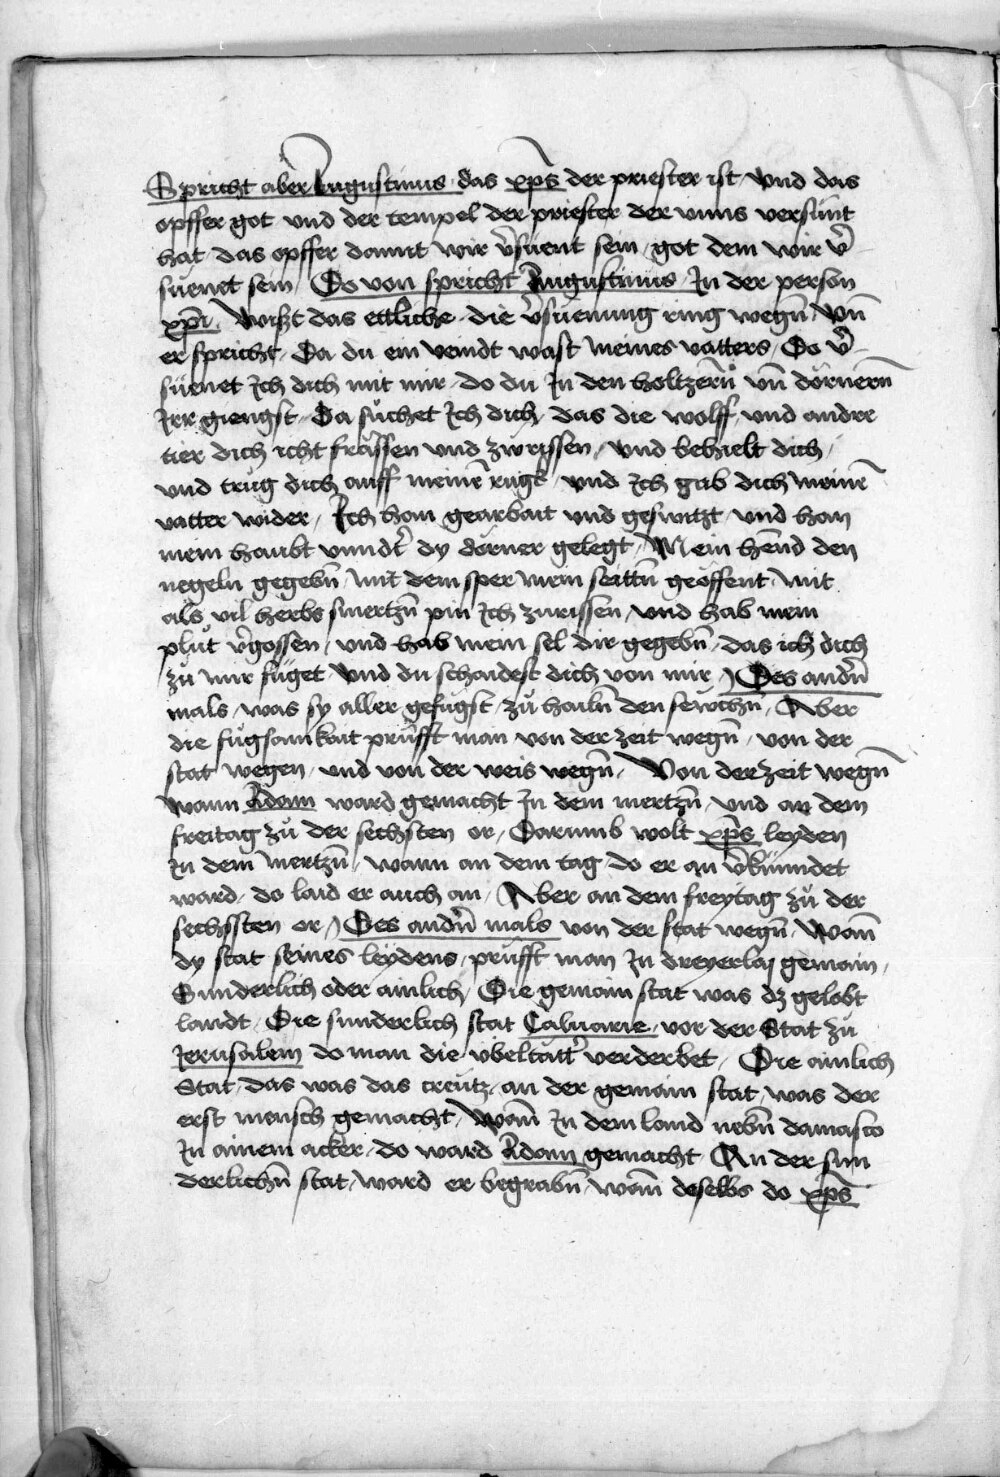 Spricht aber Augustinus das xp̄s der priester ist Vnd das
opffer got vnd der tempel der priester der vnns versünt
hat das opffer damit wir v̄süent sein got dem wir v̄
süenet sein Do von spricht Augustinus In der person
xp̄i Wiszt das ettliche die v̄süenung ring wegn̄ Vn̄
er spricht Da du ein veindt wast meines vatters Do v̄
süenet Ich dich mit mir do du In den holtzern̄ vn̄ dörnern̄
Irr giengst Da suͦchet Ich dich das die wolff vnd andre
tier dich icht frässen vnd zwrissen Vnd behielt dich
vnd truͦg dich auff meinē rugk vnd Ich gab dich meinē
vatter wider Ich han gearbait vnd geswitzt vnd han
mein haubt vnndt̄ dy dörner gelegt Mein hēnd den
negeln gegebn̄ mit dem sper mein seittn̄ geöffent mit
als vil herbs smertzn̄ pin Ich zurissen vnd hab mein
pluͦt v̄gossen vnd hab mein sel dir gegebn̄ das ich dich
zuͦ mir füget Vnd du schaidest dich von mir Des andn̄
mals was sy aller gefuͦgst zuͦ hailn̄ den sewchn̄ Aber
die fuͦgsamkait prüfft man von der zeit wegn̄ von der
stat wegen vnd von der weis wegn̄ Von der zeit wegn̄
wann Adam ward gemacht In dem mertzn̄ vnd an dem
freitag zuͦ der sechsten or Darumb wolt xp̄s leyden
In dem mertzn̄ wann an dem tag do er an v̄kunndet
ward do laid er auch an Aber an dem freytag zuͦ der
sechssten or Des andn̄ mals von der stat wegn̄ Wan̄
dy stat seines leydens prüfft man In dreyerlaj gemain
Sunderlich oder ainlich Die gemain stat was dz gelobt
landt Die sunderlich stat Caluarie vor der Stat zuͦ
Jerusalem do man die vbeltätt̄ verderbet Die ainlich
Stat das was das creutz an der gemain stat was der
erst mensch gemacht Wan̄ In dem land nebn̄ damasco
In ainem acker do ward Adam gemacht An der sun
derlichn̄ stat ward er begrabn̄ wan̄ deselbs do xp̄s